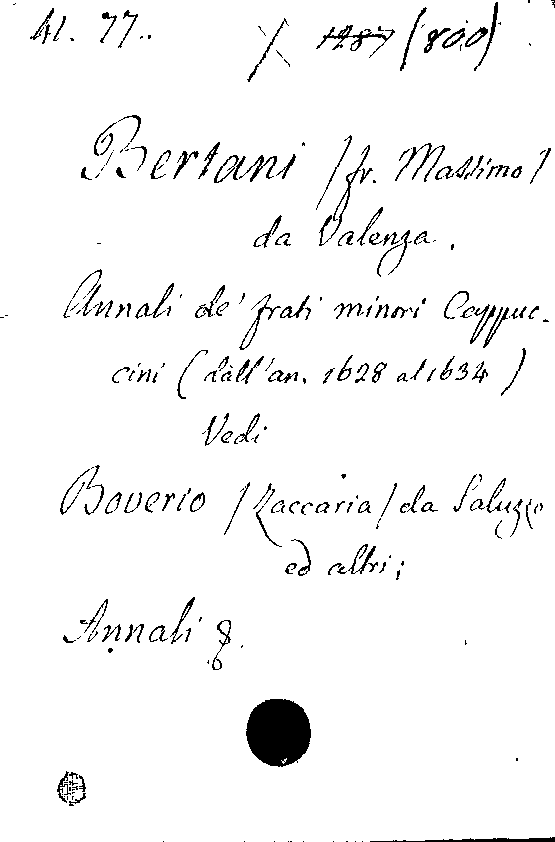 41. 77..
X 1287 (800)
Bertani /fr. Massimo/
da Valenza.
Annali de' frati minori Cappuc-
cini (dall'an. 1628 al 1634)
Vedi
Boverio /Zaccaria/ da Saluzzo
ed altri;
Annali